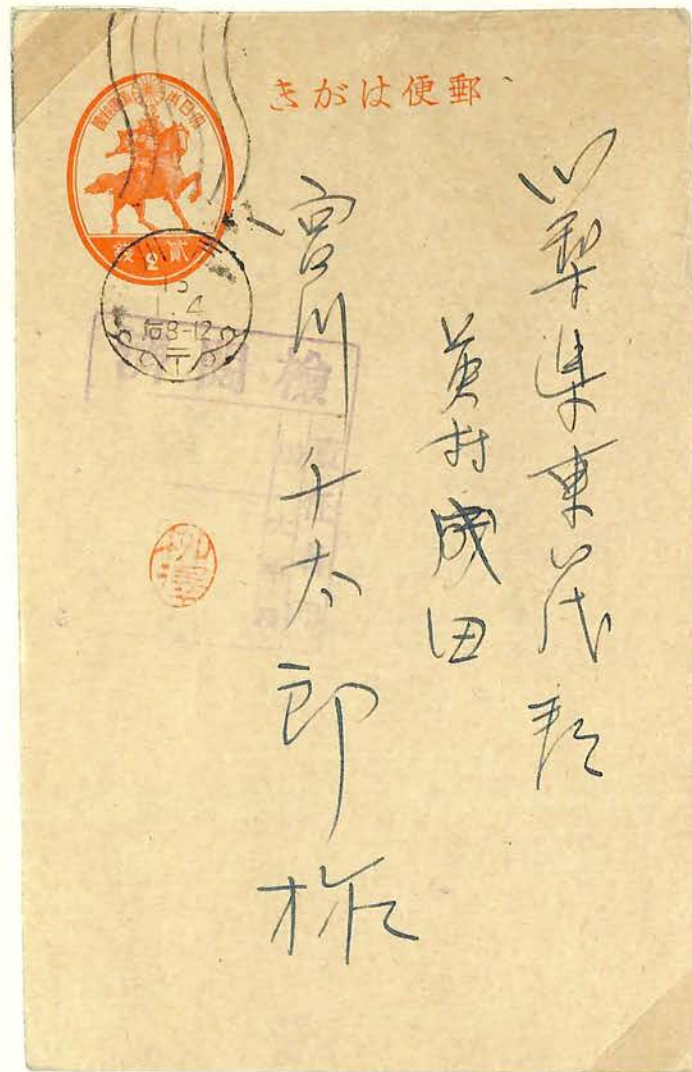 郵便はがき
山梨県東八代郡
英村成田
宮川千太郎様
大日本帝国郵便
貳銭
2
15
1.4
后8-12
〒
検閲済
柳澤